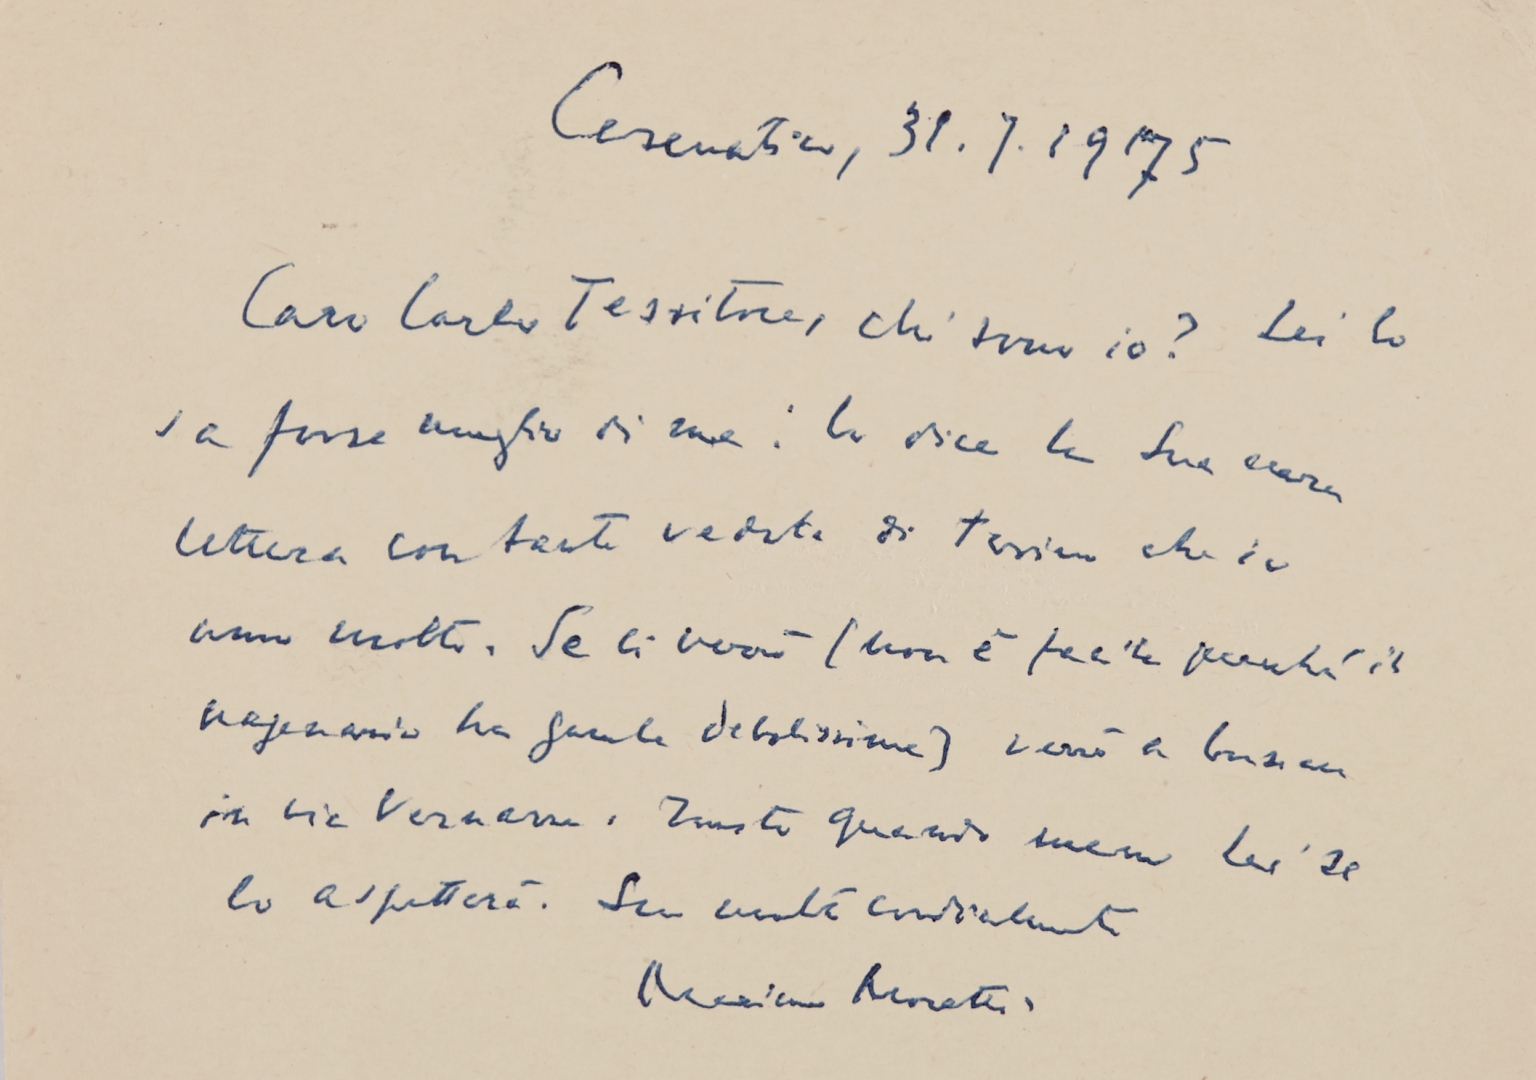 Cesenatico, 31.7.1975
Caro Carlo Tessitore, chi sono io? Lei lo
sa forse meglio di me: lo dice la Sua cara
lettera con tante vedute di Torino che io
amo molto. Se ci verrò (non è facile perché il
nagenario ha gambe debolissime) verrò a bussare
in via Vernazza. quando meno Lei se
lo aspetterà. Suo molto cordialmente
Marino Moretti.